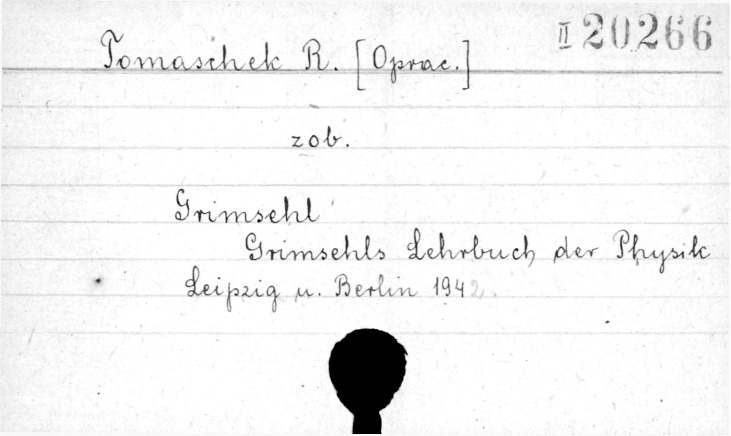 II 20266
Tomaschek R. [Oprac.]
zob.
Grimsehl
Grimsehls Lehrbuch der Physik
Leipzig u. Berlin 1942.